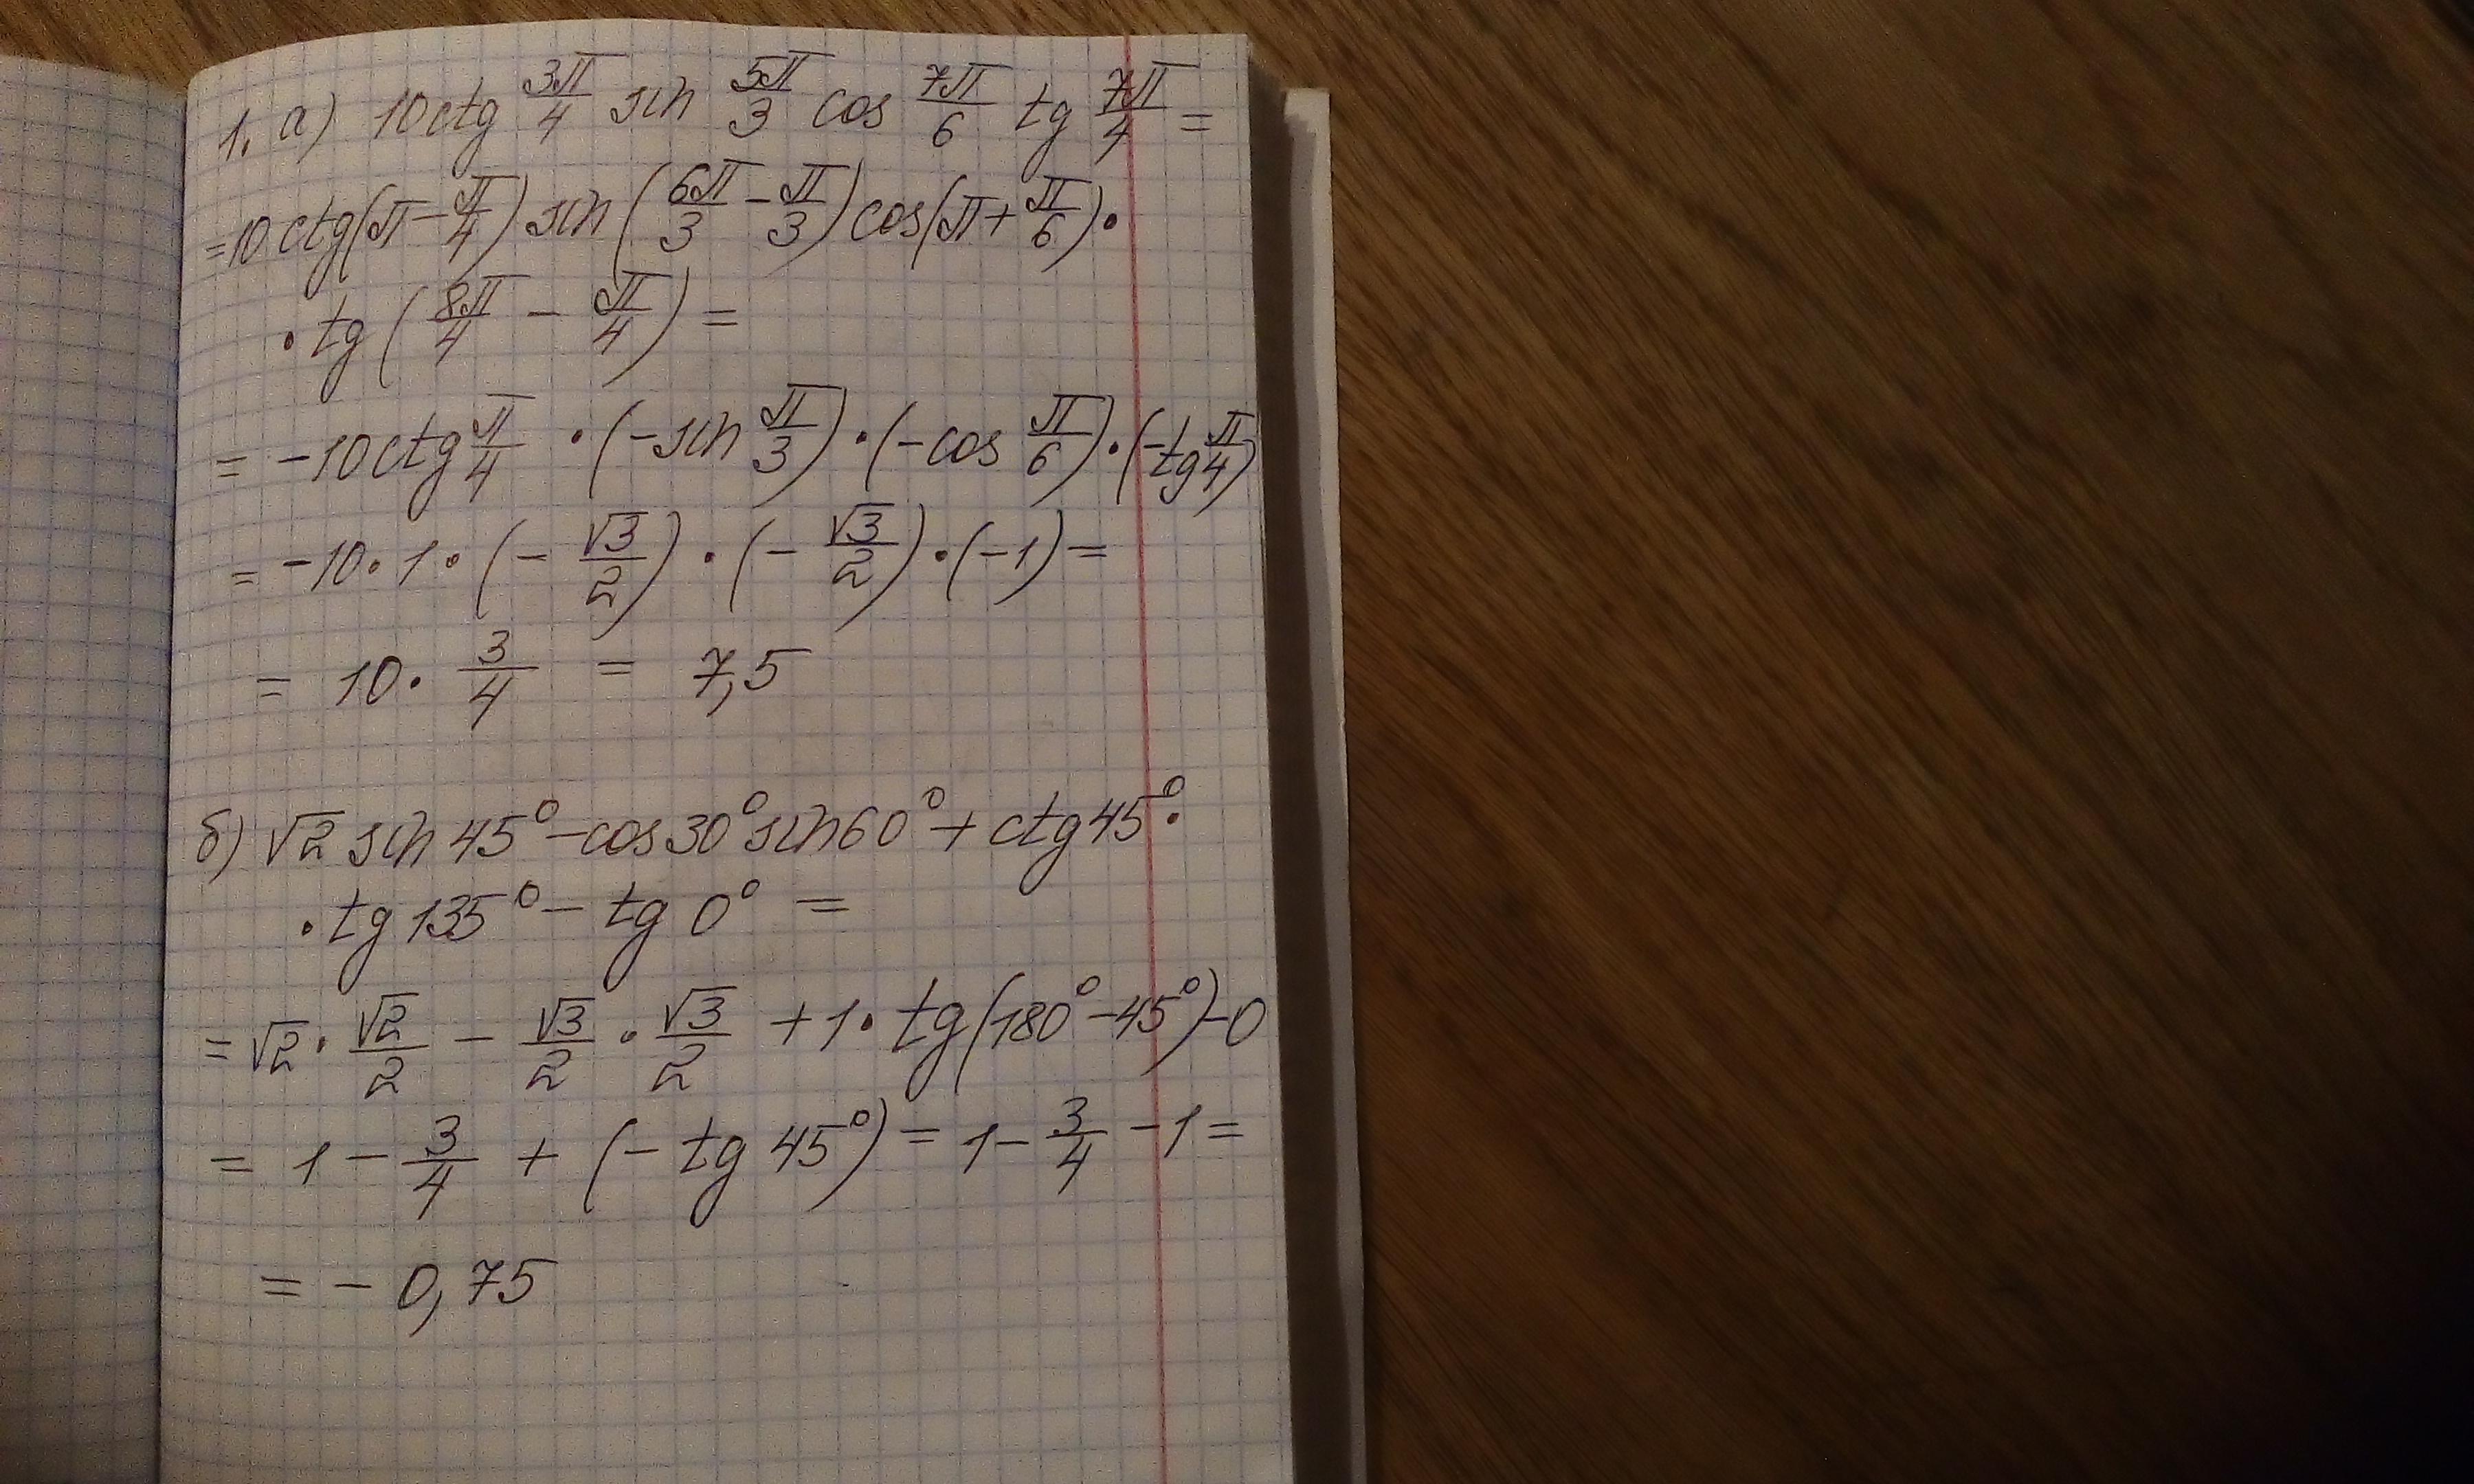 1. а) 10ctg 3π/4 sin 5π/3 cos 7π/6 tg 7π/4 =
=10ctg(π-π/4) sin(6π/3-π/3)cos(π+π/6)·
·tg(8π/4 - π/4) =
= -10ctg π/4 ·(-sin π/3)·(-cos π/6)·(-tg π/4)
= -10·1·(-√3/2)·(-√3/2)·(-1)=
= 10· 3/4 = 7,5
б) √2 sin45°-cos30°sin60°+ctg45°·
·tg135°-tg0° =
=√2·√2/2 - √3/2·√3/2 +1·tg(180°-45°)-0
= 1 - 3/4 + (-tg 45°)= 1- 3/4 -1=
= - 0,75